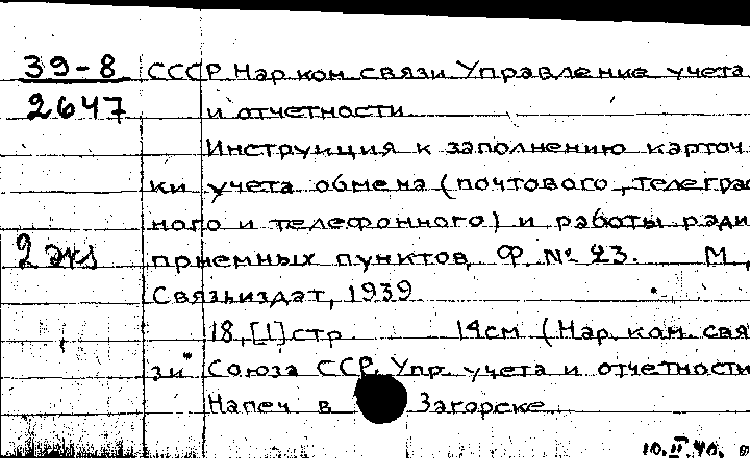 39-8 СССР Нар.ком.связи Управление учета
2647 и отчетности
Инструкция к заполнению карточ
ки учета обмена (почтового, телеграф
ного и телефонного) и работы ради
2 экз приемных пунктов. Ф. № 23. М.,
Связьиздат, 1939
18,[1]стр. 14см (Нар. ком. свя
зи" Союза ССР. Упр. учета и отчетности
Напеч. в Загорске
10.II.40.